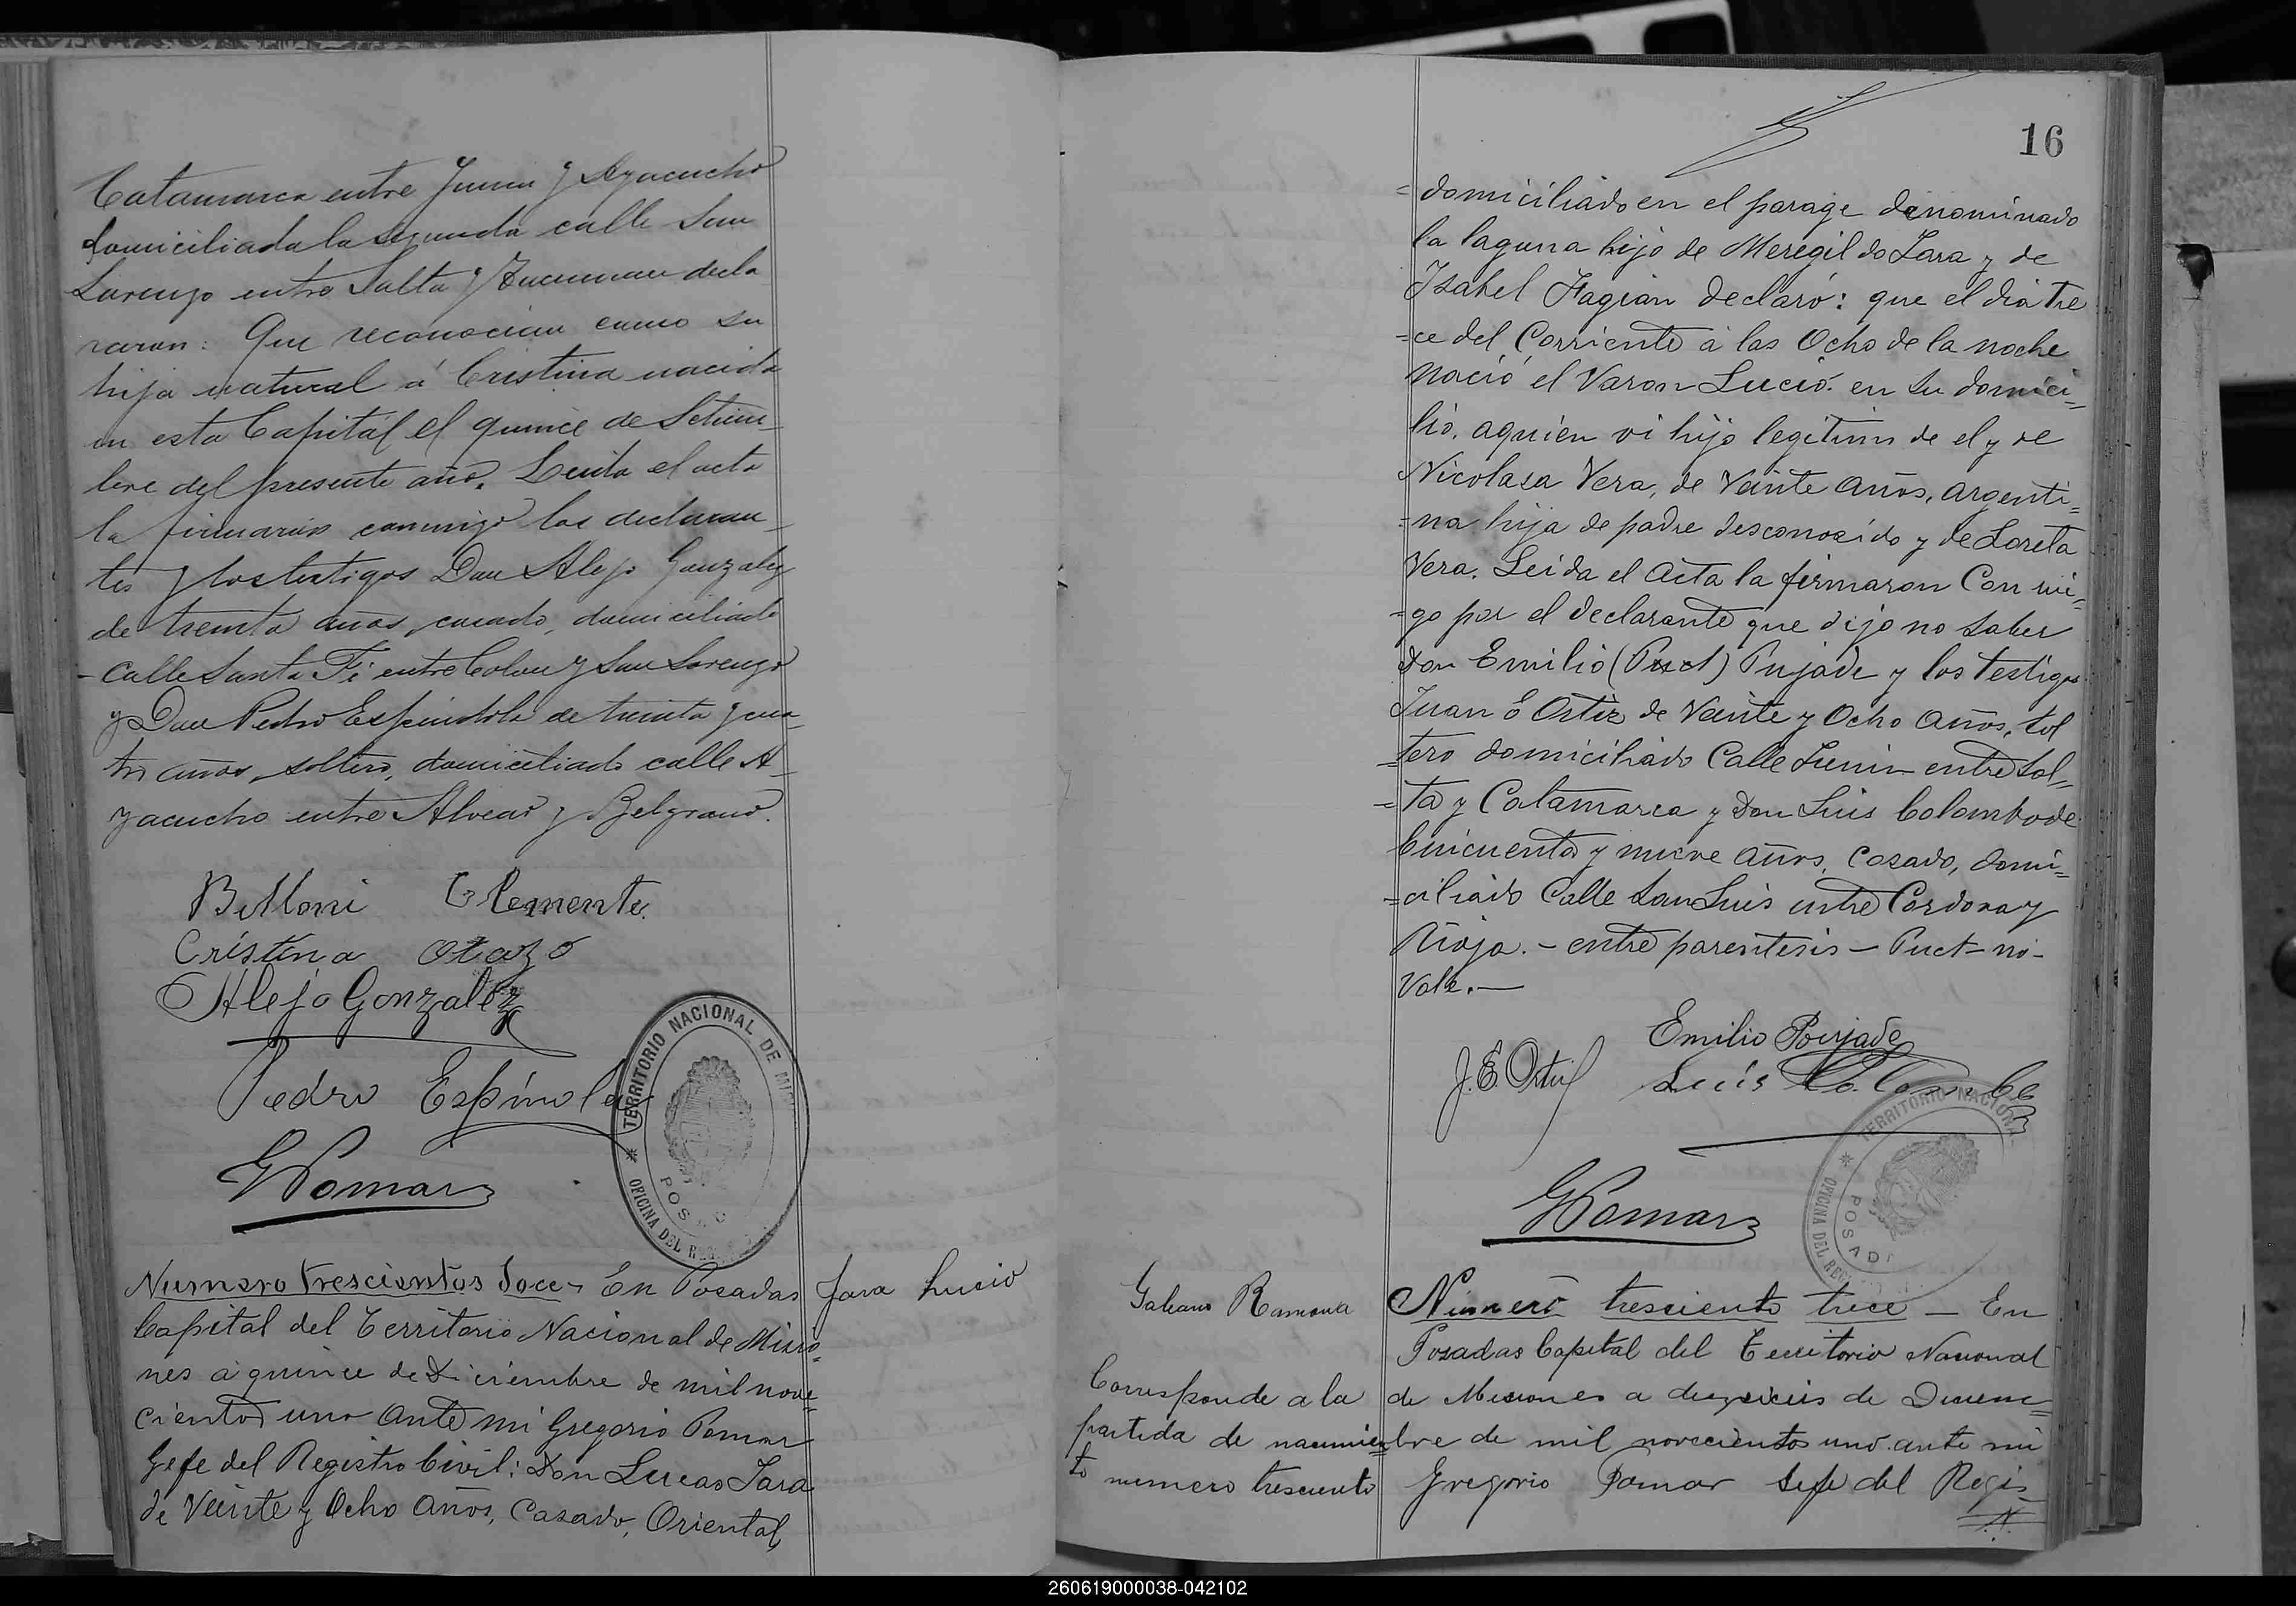 Catamarca entre Junin y Ayacucho
domiciliada la segunda calle San
Lorenzo entre Salta y Tucuman decla
raron: Que reconocian como su
hija natural á Cristina nacida
en esta Capital el quince de Setiem_
bre del presente año. Leida el acta
la firmaron conmigo los declaran_
tes y los testigos Don Alejo Gonzalez
de treinta años, casado, domiciliado
calle Santa Fé entre Colon y San Lorenzo
y Don Pedro Espindola de treinta y cua_
tro años, soltero, domiciliado calle A_
yacucho entre Alvear y Belgrano.
Belloni Clemente.
Cristina Otazo
Alejo Gonzalez
Pedro Espinola
GPomar
TERRITORIO NACIONAL DE MISI
OFICINA DEL REG
POSAD
Numero trescientos doce - En Posadas
Capital del Territorio Nacional de Misio=
nes a quince de Diciembre de mil nove=
cientos uno ante mi Gregorio Pomar
Gefe del Registro Civil: Don Lucas Jara
de Veinte y Ocho años, Casado, Oriental,
Jara Lucio
16
=domiciliado en el parage denominado
la laguna hijo de Meregildo Jara y de
Isabel Fagian declaró: que el dia tre
=ce del Corriente á las Ocho de la noche
nació el Varon Lucio. en su domici=
lio. aquien vi hijo legitimo de el y de
Nicolasa Vera, de Veinte años, argenti=
=na hija de padre desconocido y de Loreta
Vera. Leida el Acta la firmaron Con mi=
=go por el declarante que dijo no saber
Don Emilio (Puct) Pujade y los testigos
Juan E Ortiz de Veinte y Ocho años, sol
tero domiciliado Calle Junin entre Sal=
=ta y Catamarca y Don Luis Colombo de
Cincuenta y nueve años, Casado, domi=
=ciliado Calle San Luis entre Cordova y
Rioja. - entre parentesis - Puct - no -
Vale. -
Emilio Poujade
J. E. Ortiz Luis Colombo
GPomar
TERRITORIO NACIONAL
OFICINA DEL REG
POSADA
Galeano Ramona
Corresponde a la
partida de nacimien=
to numero trescientos
Numero tresciento trece - En
Posadas Capital del Territorio Nacional
de Misiones a diez y seis de Diciem=
bre de mil novecientos uno ante mi
Gregorio Pomar Gefe del Regis
260619000038-042102